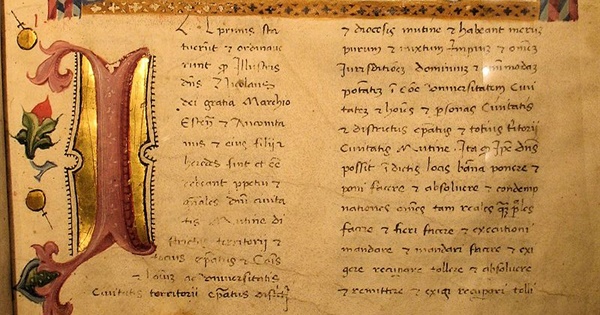 In primis sta
tuerunt & ordinave
runt q Illustris
dns d Nicolaus
dei gratia Marchio
Esten & Ancomta
nus & eius filij &
heredes sint et ee
debeant ppetui &
gnales dni civita
tis Mutine di
strictus territorij &
locus epatus & Cois
& hoium ac universitatis
Civitatis territorii epatus distctq
& diocesis mutine & habeant meruz
purum & mixtum Impiuz & omez
Jurisditioez dominiuz & omimodaz
potatez i Coe universitatem Civi
tatez & hoies & psonas Civitatis
& districtus epatus & totius tritorij
Civitatis Mutine. Ita q Ipe dns
possit i dictis locis banna ponere &
poni facere & absolvere & condemp
nationes omes tam reales qz psles
facere & fieri facere & executioni
mandare & mandari facere & exi
gere recupare tollere & absolvere
& remittere & exigi recupari tolli